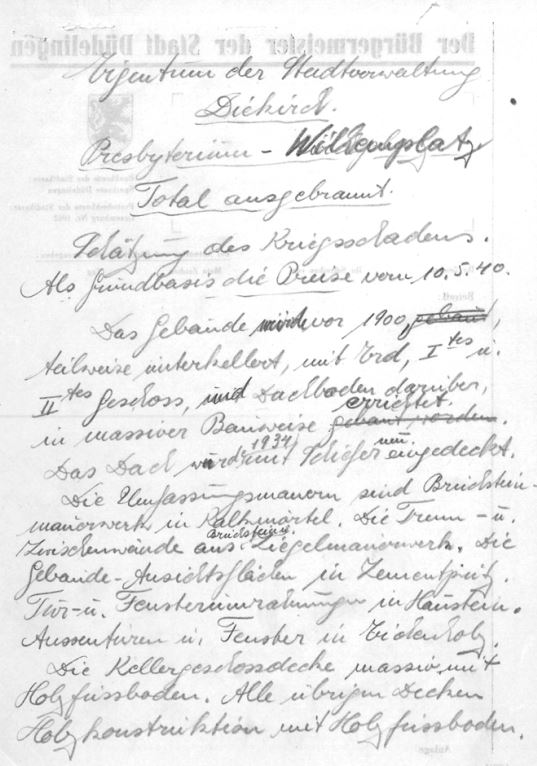 Der Bürgermeister der Stadt Düdelingen
Eigentum der Stadtverwaltung
Diekirch.
Presbyterium - Wilhelmplatz
Total ausgebrannt.
Schätzung des Kriegsschadens.
Als Grundbasis die Preise vom 10.5.40.
Das Gebäude wurde vor 1900, gebaut,
teilweise unterkellert, mit Erd, Ites u.
IItes Geschoss, und Dachboden darüber,
errichtet.
in massiver Bauweise gebaut worden.
1934 neu
Das Dach wurde mit Schiefer eingedeckt.
Die Umfassungsmauern sind Bruchstein-
mauerwerk in Kalkmörtel. Die Trenn- u.
Bruchstein u.
Zwischenwände aus Ziegelmauerwerk. Die
Gebäude-Ansichtsflächen in Zementputz.
Tür- u. Fensterumrahmungen in Haustein.
Aussentüren u. Fenster in Eichenholz.
Die Kellergeschossdecke massiv mit
Holzfussboden. Alle übrigen Decken
Holzkonstruktion mit Holzfussboden.
Anlage